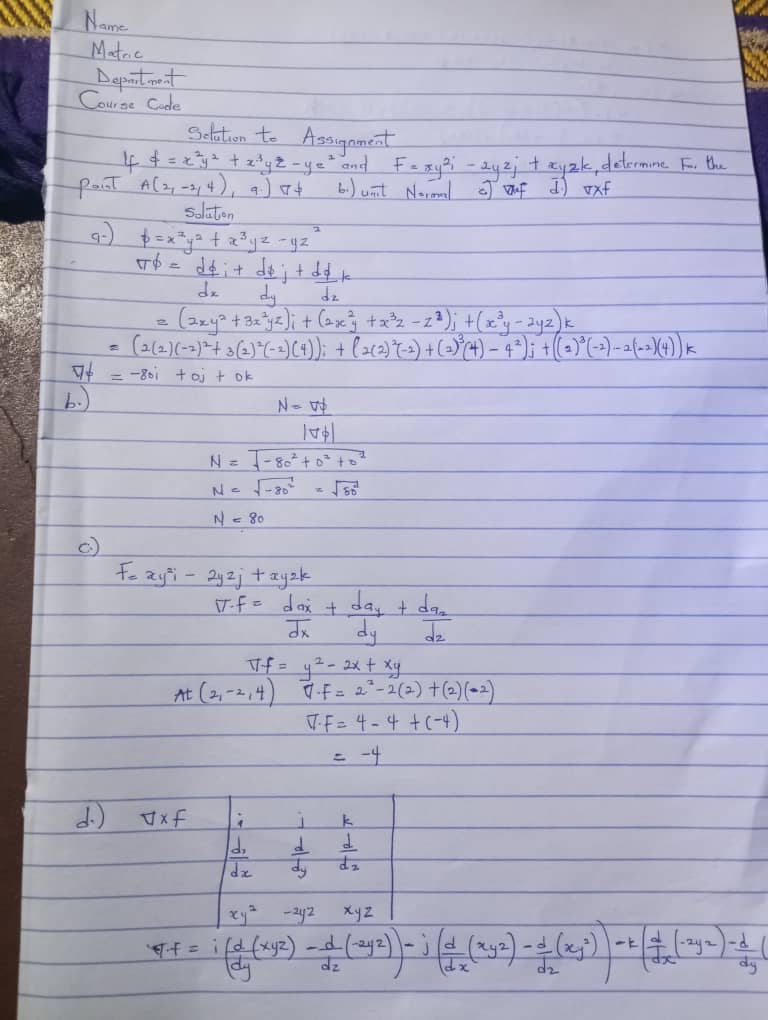 Name
Matric
Department
Course Code
Solution to Assignment
If φ = x²y² + x³yz - yz² and F = xy²i - 2yzj + xyzk, determine For the
point A(2, -2, 4), a.) ∇φ b.) unit Normal c) ∇.f d.) ∇xf
Solution
a.) φ = x²y² + x³yz - yz²
∇φ = dφ/dx i + dφ/dy j + dφ/dz k
= (2xy² + 3x²yz)i + (2x²y + x³z - z²)j + (x³y - 2yz)k
= (2(2)(-2)² + 3(2)²(-2)(4))i + (2(2)²(-2) + (2)³(4) - 4²)j + ((2)³(-2) - 2(-2)(4))k
∇φ = -80i + 0j + 0k
b.) N = ∇φ/|∇φ|
N = √-80² + 0² + 0²
N = √-80² = √80²
N = 80
c.)
F = xy²i - 2yzj + xyzk
∇.f = dax/dx + day/dy + daz/dz
∇f = y² - 2x + xy
At (2, -2, 4) ∇.f = 2² - 2(2) + (2)(-2)
∇.f = 4 - 4 + (-4)
= -4
d.) ∇xf | i j k
d/dx d/dy d/dz
xy² -2yz xyz |
∇.f = i(d/dy (xyz) - d/dz (-2yz)) - j(d/dx (xyz) - d/dz (xy²)) - k(d/dx (-2yz) - d/dy (